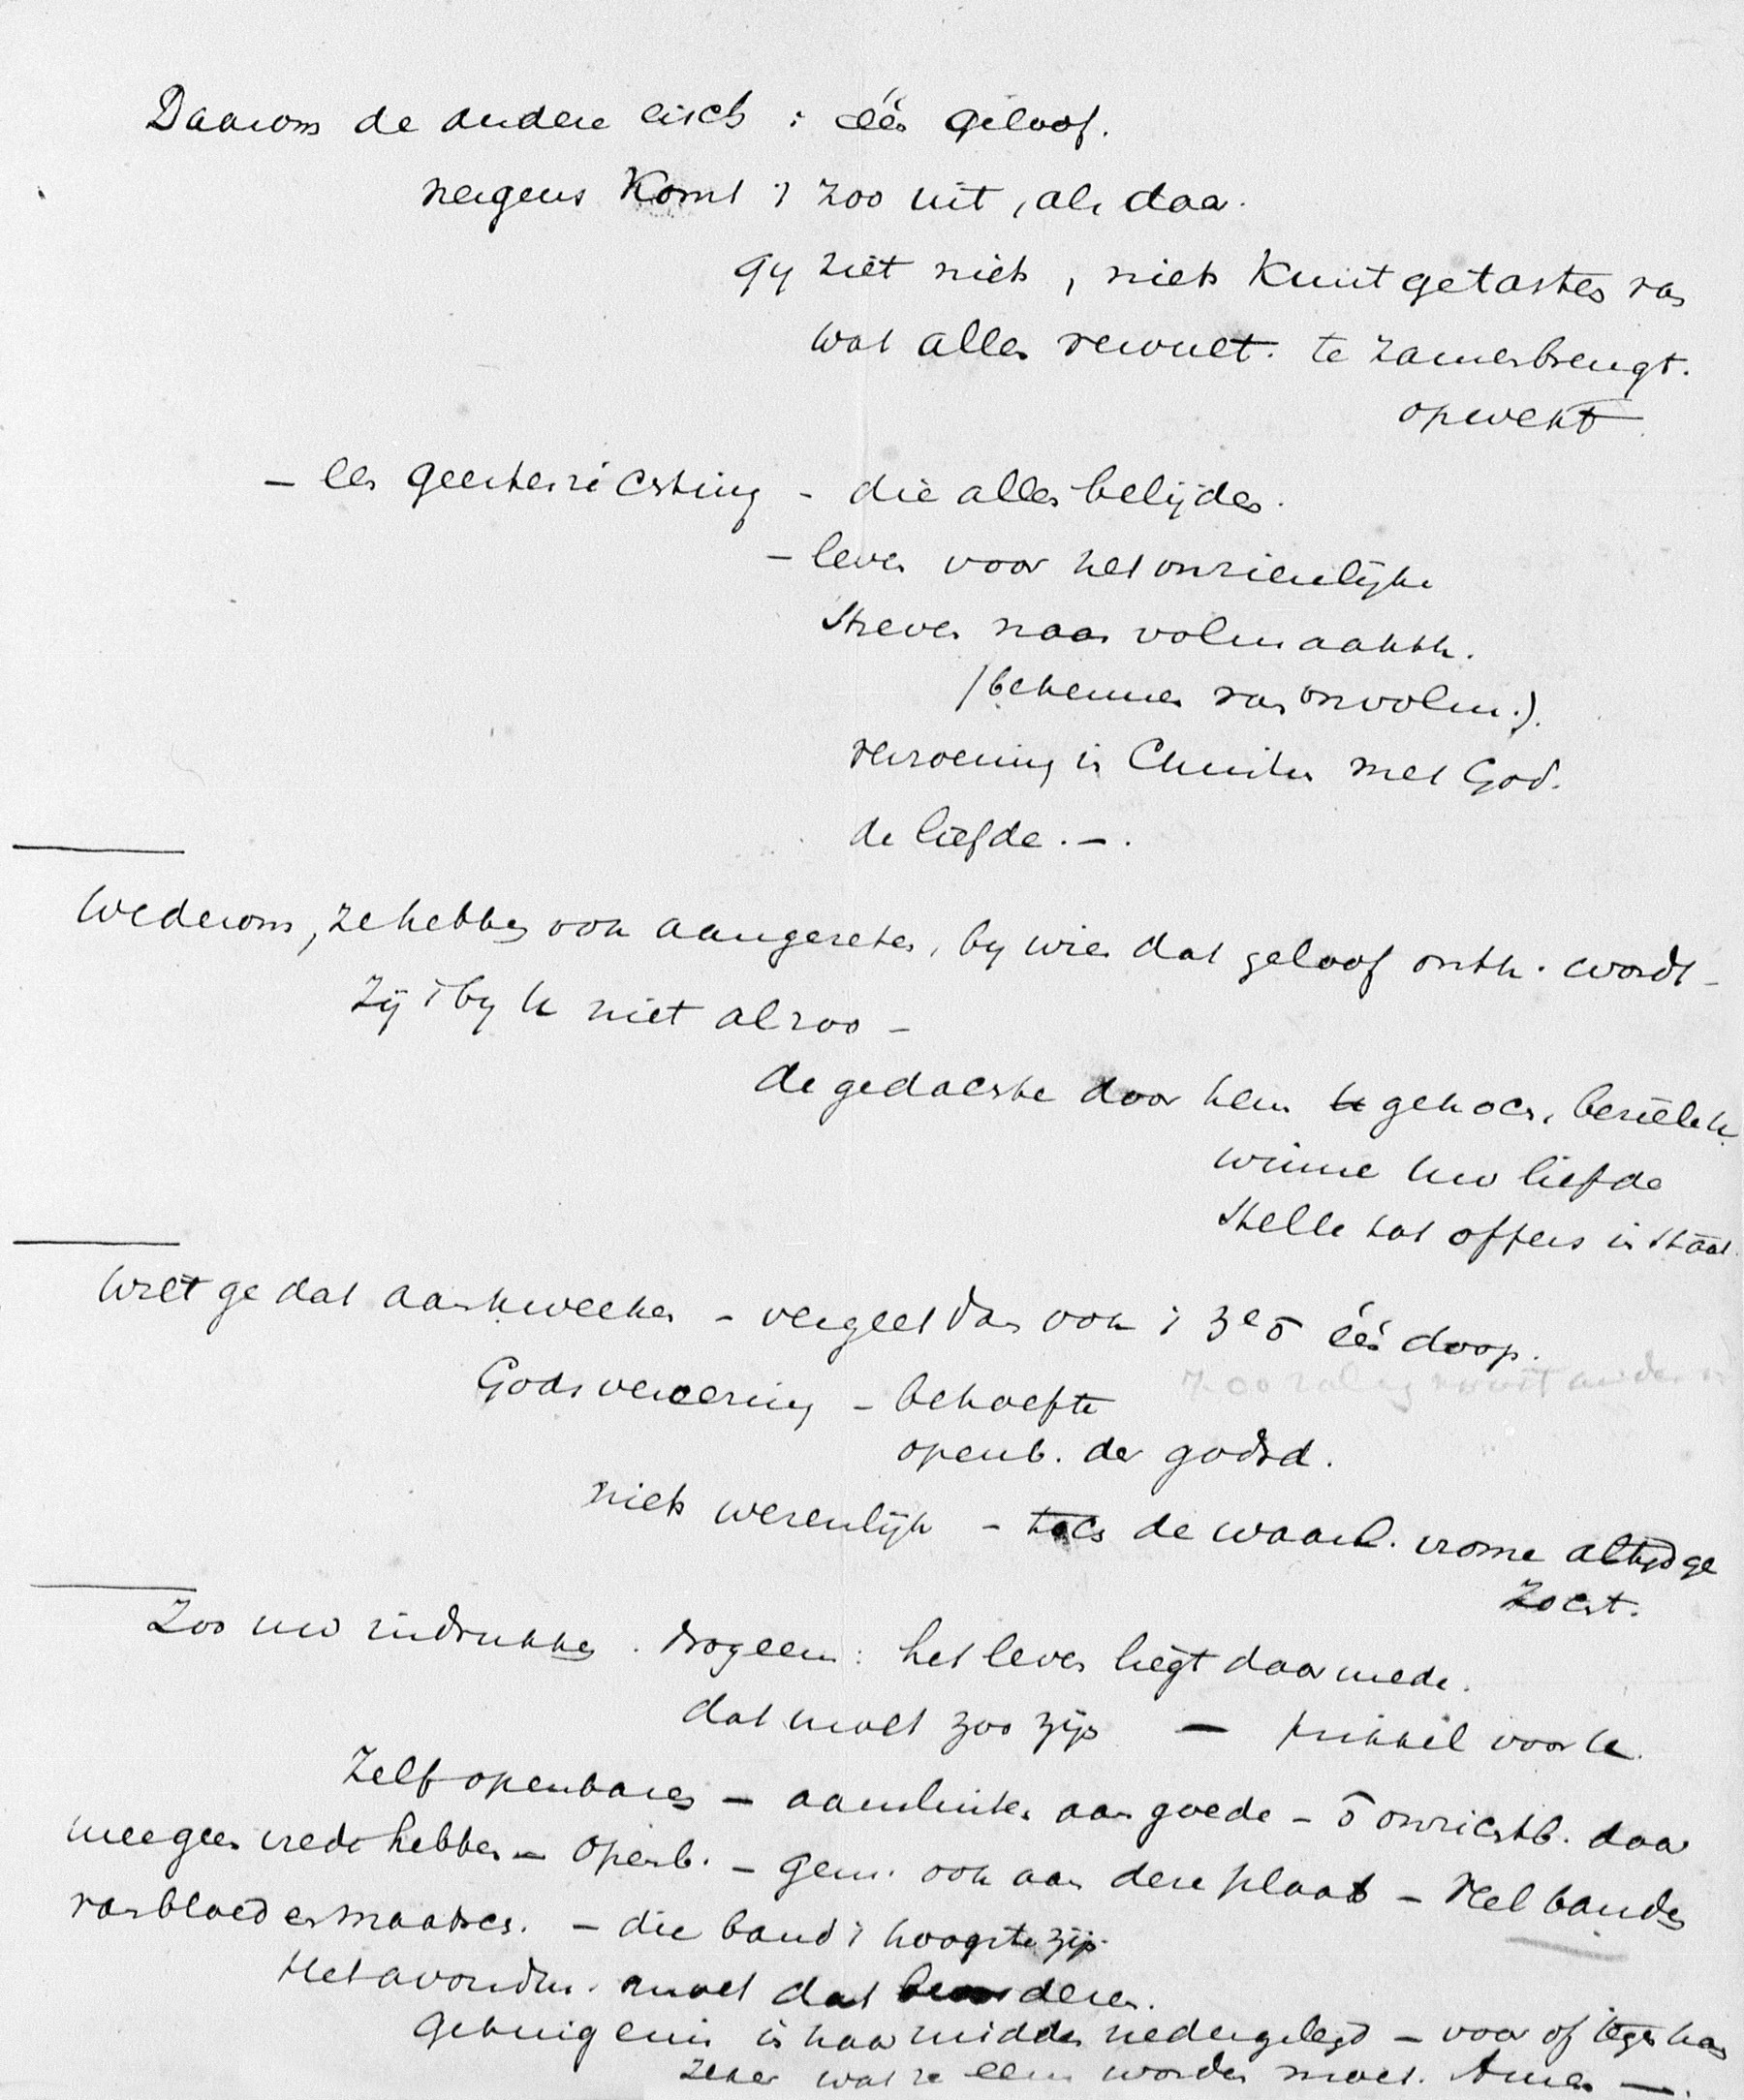 Daarom de andere eisch : één geloof.
nergens komt 't zoo uit, als daar.
gy ziet niets, niets kunt getasten van
wat alles vervult. te zamenbrengt.
opwekt
– een geestesrichting – die allen belijden.
– leven voor het onzienlijke
streven naar volmaakth.
(bekennen van onvolm.).
verzoening in Christus met God.
de liefde. –.
Wederom, ze hebben ook aangezeten, by wien dat geloof ontk. wordt –
zij 't by U niet alzoo –
de gedachte door hem gekoes, beziele U
winne uw liefde
stelle tot offers in staat.
Wilt ge dat aankweeken – vergeet dan ook 't 3e ō één doop.
Godsvereering – behoefte
openb. der godsd.
niets wezenlijk – toch de waarl. vrome altijd ge
zocht.
Zoo uw indrukken. het leven liegt daarmede.
dat moet zoo zijn – prikkel voor U.
Zelf openbaren – aansluiten aan goede – ō onzichtb. daar
mee geen vrede hebben – Openb. – gem. ook aan dere plaats – Veel banden
van bloed en maatsch. – die band 't hoogste zijn.
Het avondm. moet dat
Getuigenis in haar midden nedergelegd – voor of tegen haar
zeker wat ze eens worden moet. Amen –.